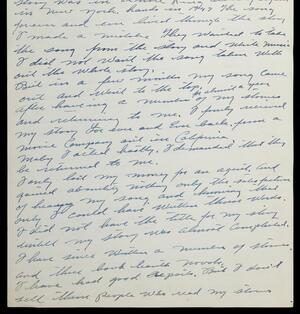 in New York hands. As the song
from and ever lived through the story
I made a mistake They wanted to take
the song from the story and write music
I did not want the song taken with
out the whole story.
But in a few months my song came
out and went to the top. almost a year
after having a number of my stories
and returning to me. I finely recived
my story For ever and Ever back, from a
movie Company out in California
Maby I acted hastly. I demanded that they
be returned to me.
I only lost my money for an agent, and
gained absolutly nothing only the satisfaction
of hearing my song, and knowing that
only I could have written those Words.
I did not have the title for my story
untill my story was almost Completed.
I have since written a number of stories.
and three book length novels.
I have had good reports. But I don't
sell them people who read my stories